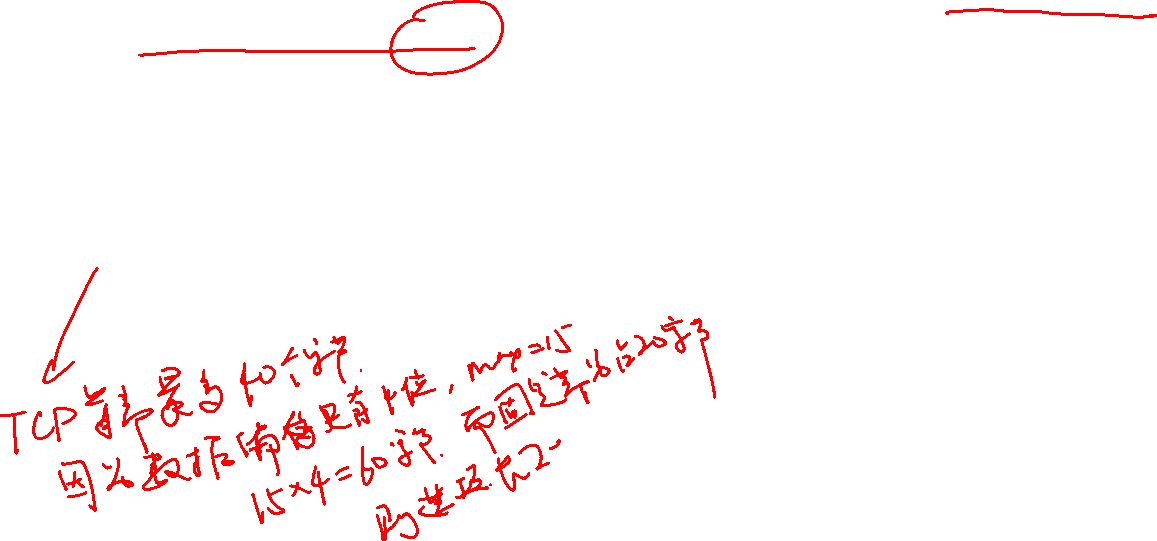 TCP首部最多40个字节.
因为数据偏移只有4位, max=15
15×4=60字节. 而固定部分占20字节
则选项